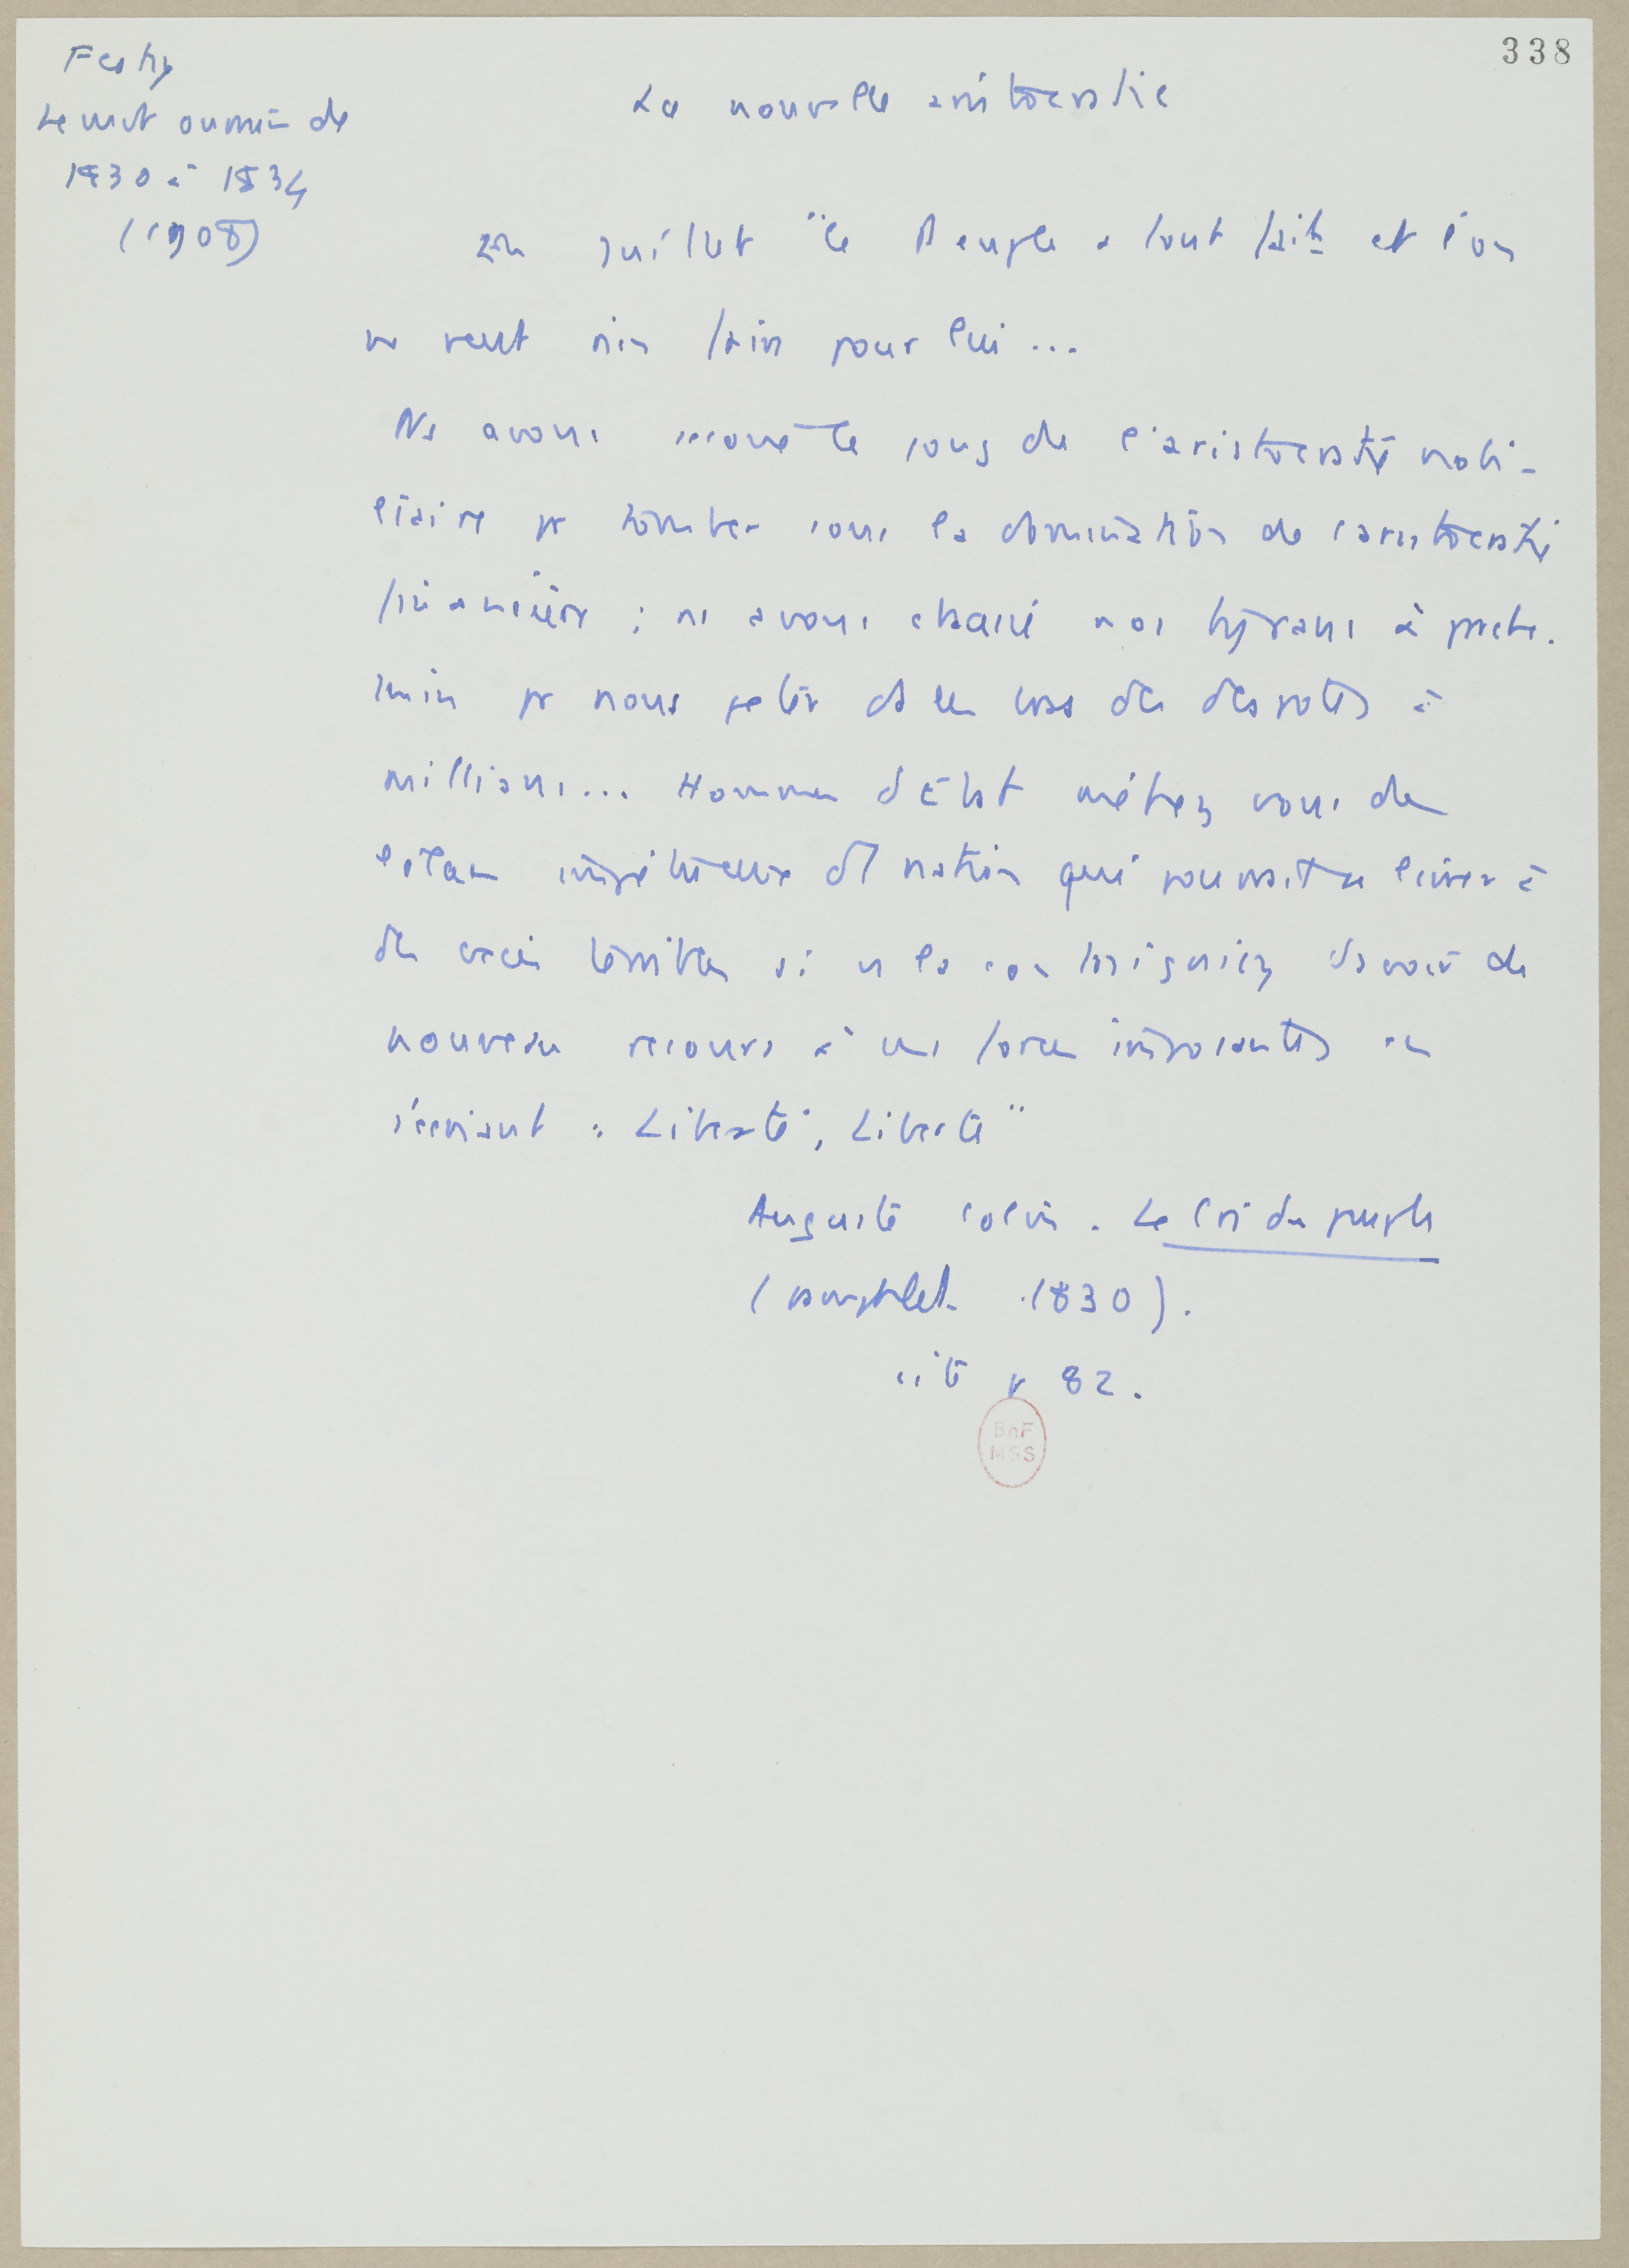 338
Festy
Le mvt ouvrier de
1830 à 1834
(1908)
La nouvelle aristocratie
En juillet "le Peuple a tout fait et l'on
ne veut rien faire pour lui...
Ns avons secoué le joug de l'aristocratie nobi-
liaire pr tomber sous la domination de l'aristocratie
financière ; ns avons chassé nos tyrans à parche-
min pr nous jeter ds les bras des despotes à
millions... Hommes d'Etat méfiez vous de
l'élan impétueux d'1 nation qui pourrait se livrer à
des excès terribles si vs la contraigniez d'avoir de
nouveau recours à ses forces imposantes en
s'écriant : Liberté, Liberté"
Auguste Colin. Le Cri du peuple
(pamphlet 1830).
cité p 82.
BnF
MSS